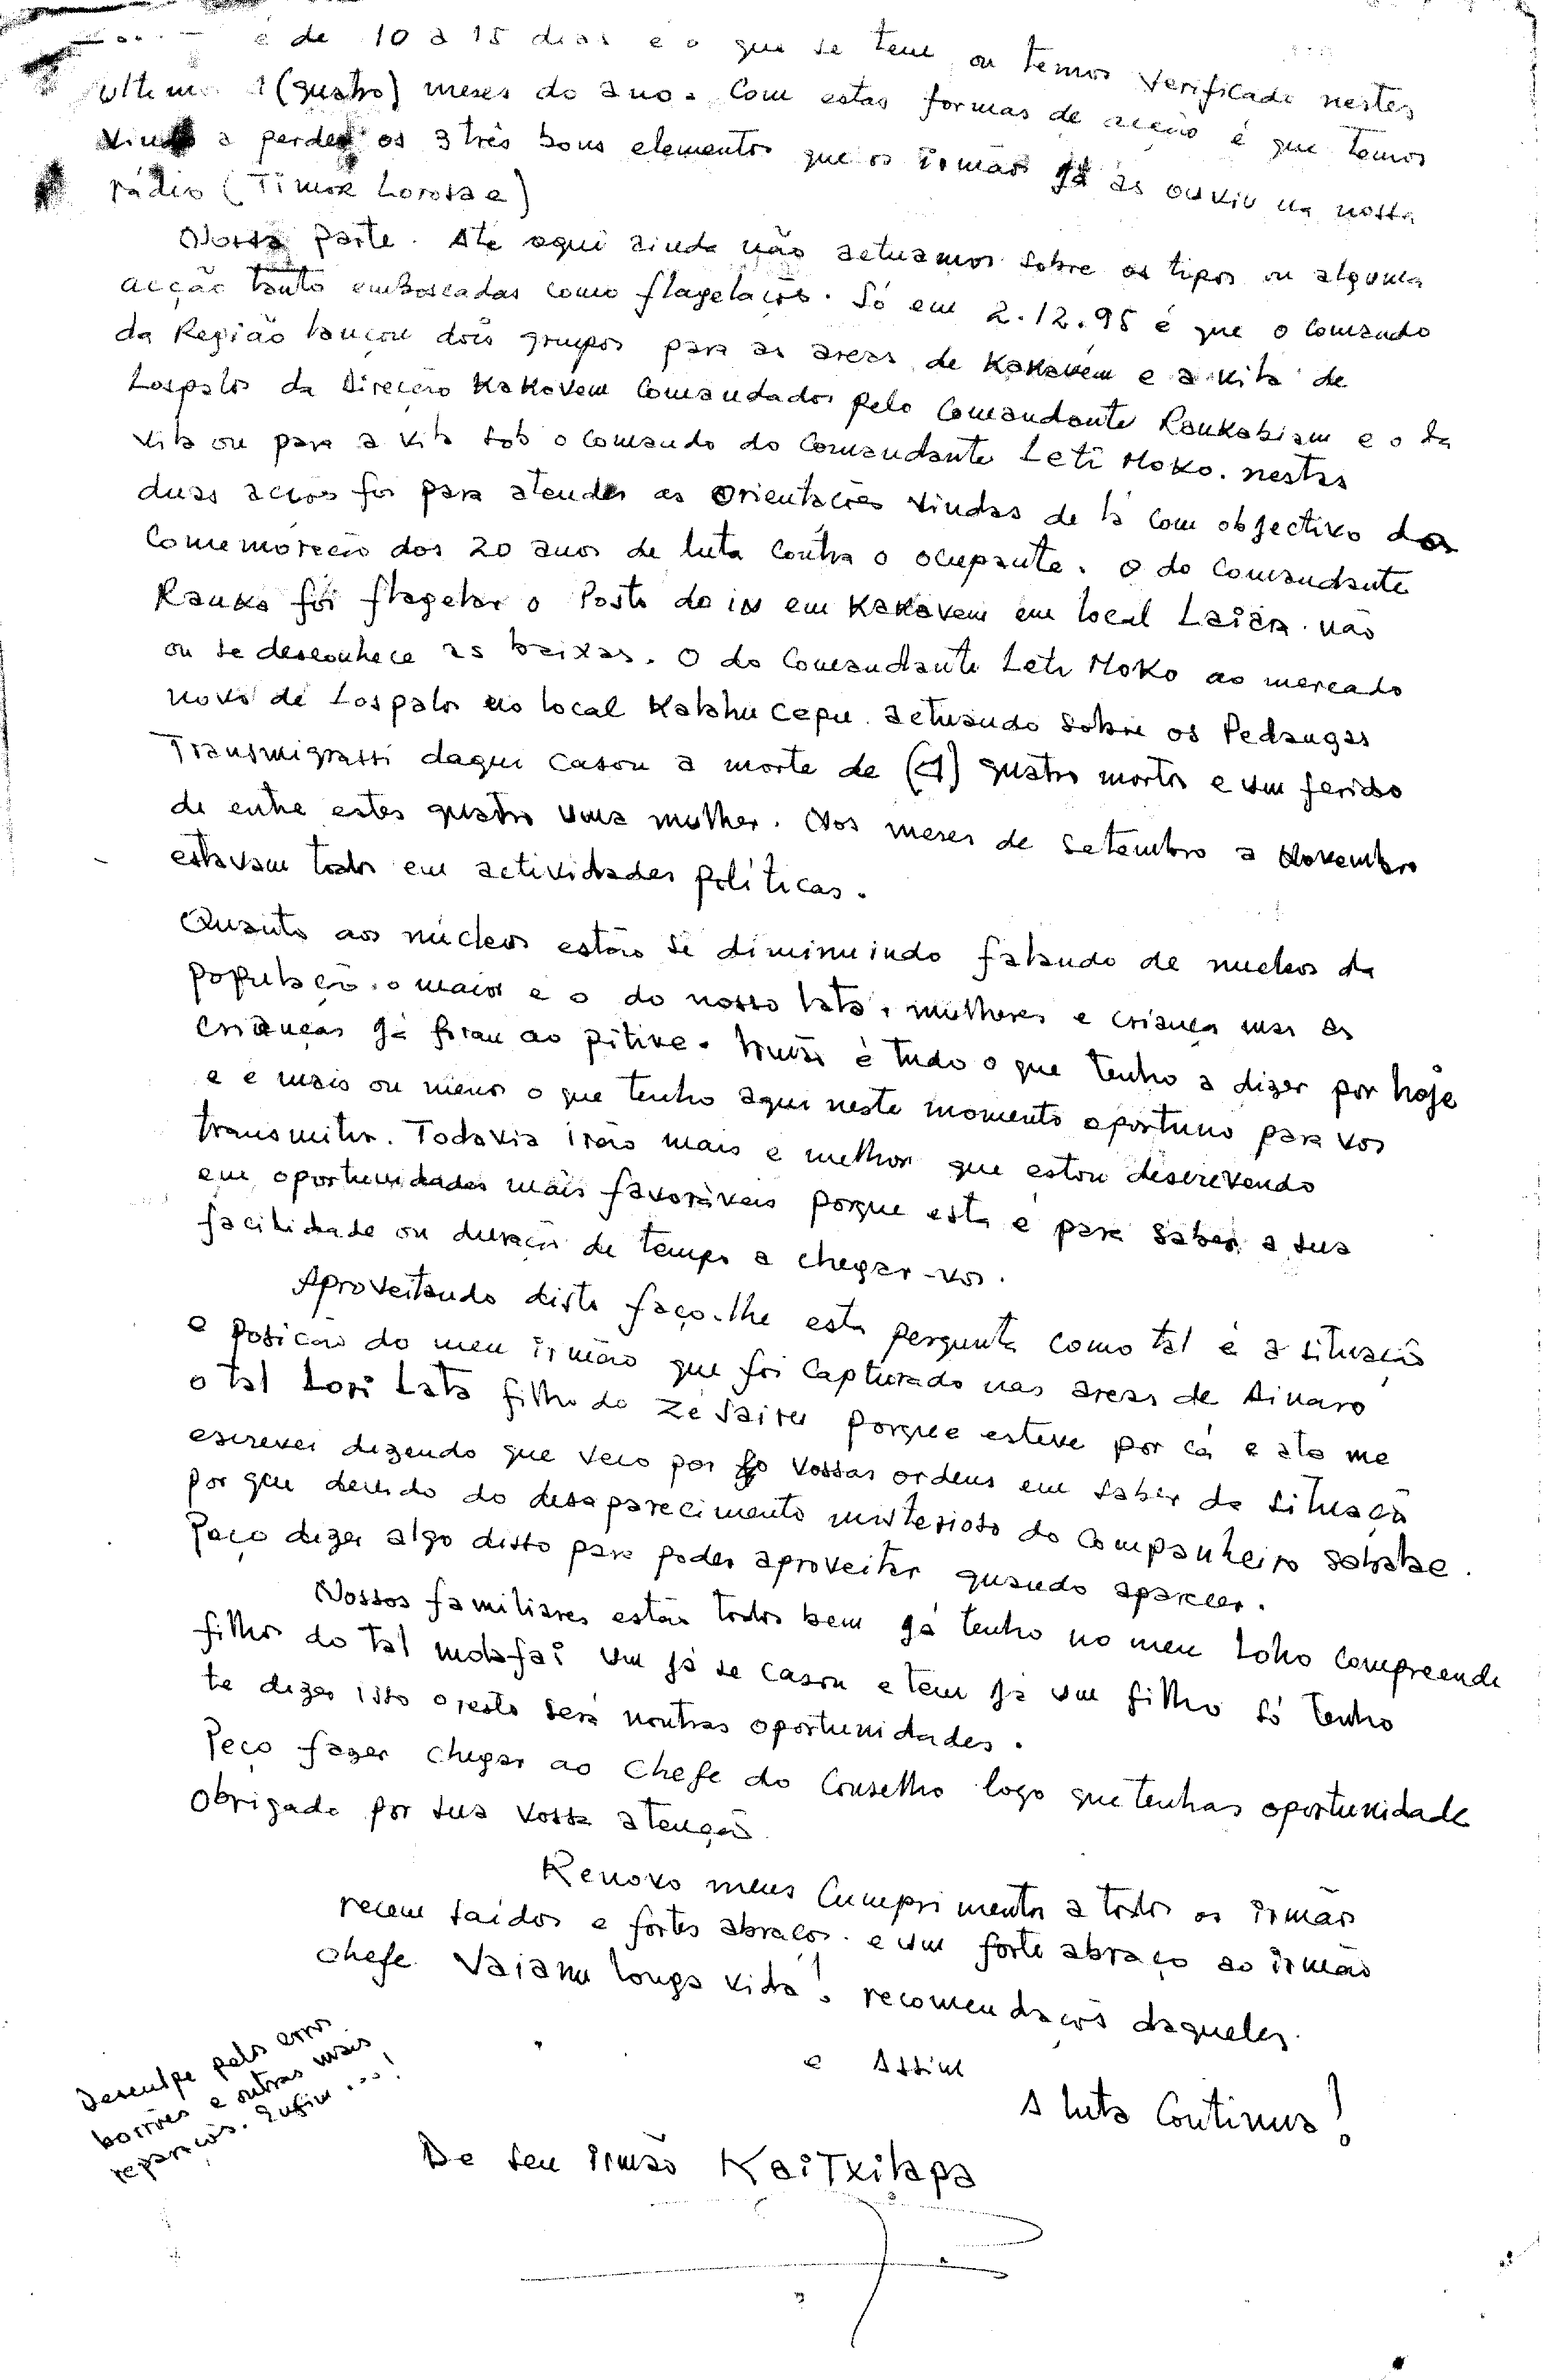 é de 10 a 15 dias e o que se tem ou temos verificado nestes
ultimos 4 (quatro) meses do ano. Com estas formas de acção é que temos
vindo a perder os 3 três bons elementos que os irmãos já as ouviu na nossa
rádio (Timor Lorosae)
Nossa parte. Ate aqui ainda não actuamos sobre os tipos ou alguma
acção tanto emboscadas como flagelações. Só em 2.12.95 é que o Comando
da Região lançou dois grupos para as areas de Kakavém e a vila de
Lospalos da Direcção Kakavem Comandados pelo Comandante Raukabiam e o da
vila ou para a vila sob o comando do Comandante Leti Moko. nestas
duas acções foi para atender as orientações vindas de lá com objectivo da
Comemoração dos 20 anos de luta contra o ocupante. o do Comandante
Rauka foi flagelar o Posto do in em Kakavem em local Laiara. não
ou se desconhece as baixas. O do Comandante Leti Moko ao mercado
novo de Lospalos no local Katahu cepu. actuando sobre os Pedangas
Transmigrassi daqui casou a morte de (4) quatro mortos e um ferido
de entre estes quatro uma mulher. Nos meses de Setembro a Novembro
estavam todos em actividades políticas.
Quanto aos núcleos estão se diminuindo falando de nucleos da
população. o maior e o do nosso lata, mulheres e criança mas as
crianças já firau ao pitive. Irmão é tudo o que tenho a dizer por hoje
e e mais ou menos o que tenho aqui neste momento oportuno para vos
transmitir. Todavia irão mais e melhor que estou descrevendo
em oportunidades mais favoráveis porque esta é para saber a sua
facilidade ou duração de tempo a chegar-vos.
Aproveitando disto faço-lhe esta pergunta como tal é a situação
e posicão do meu irmão que foi Capturado nas areas de Ainaro
o tal Lori Lata filho do Zé Saires porque esteve por cá e ate me
escrevei dizendo que veio por vossas ordens em saber da situação
por que devido do desaparecimento misterioso do Companheiro Sabalae.
Peço dizer algo disto para poder aproveitar quando aparecer.
Nossos familiares estão todos bem já tenho no meu Loho Compreende
filhos do tal molafai um já se casou e tem já um filho só tenho
te dizer isso o resto será noutras oportunidades.
Peço fazer chegar ao Chefe do Conselho logo que tenhas oportunidade
Obrigado por sua vossa atenção
Renovo meus Cumprimentos a todos os irmãos
recem saídos e fortes abraços. e um forte abraço ao irmão
chefe. Vaianu longa vida! recomendações daqueles.
e Assim
A luta Continua!
De seu irmão Kaitxilapa
Desculpe pelos erros
borrões e outras mais
reparações. Enfim...!